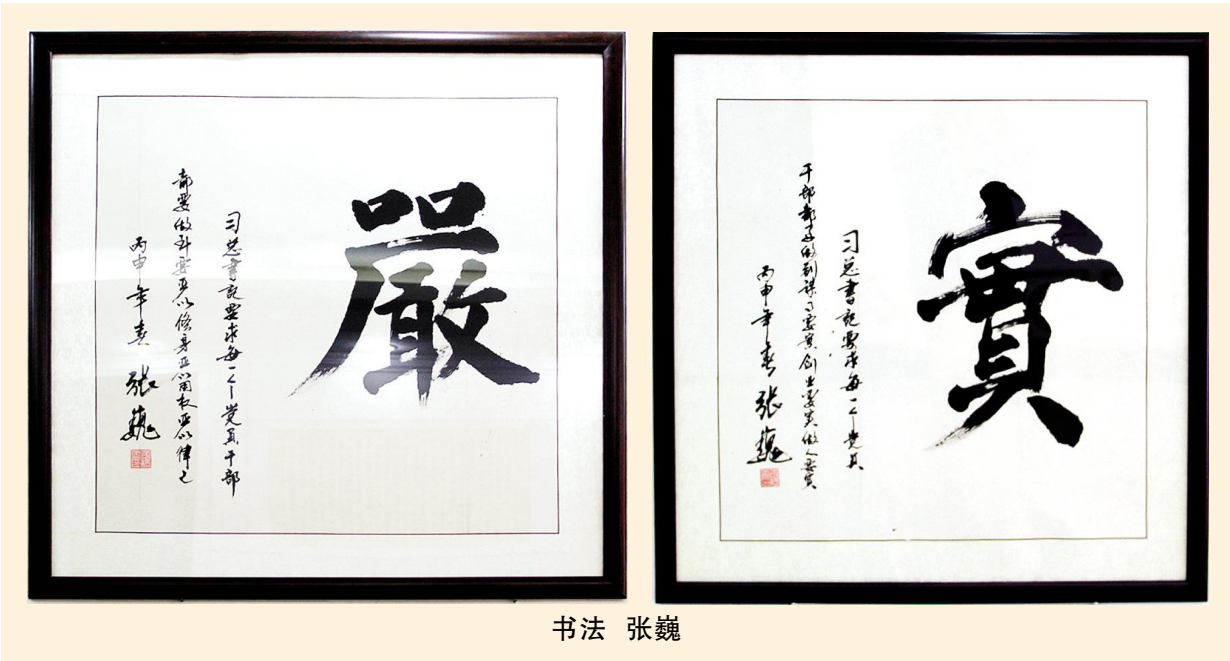 嚴
习总書记要求每一个党员干部
都要做到要严以修身严以用权严以律己
丙申年春 张巍
實
习总書记要求每一个党员
干部都要做到谋事要实创业要实做人要实
丙申年春 张巍
书法 张巍